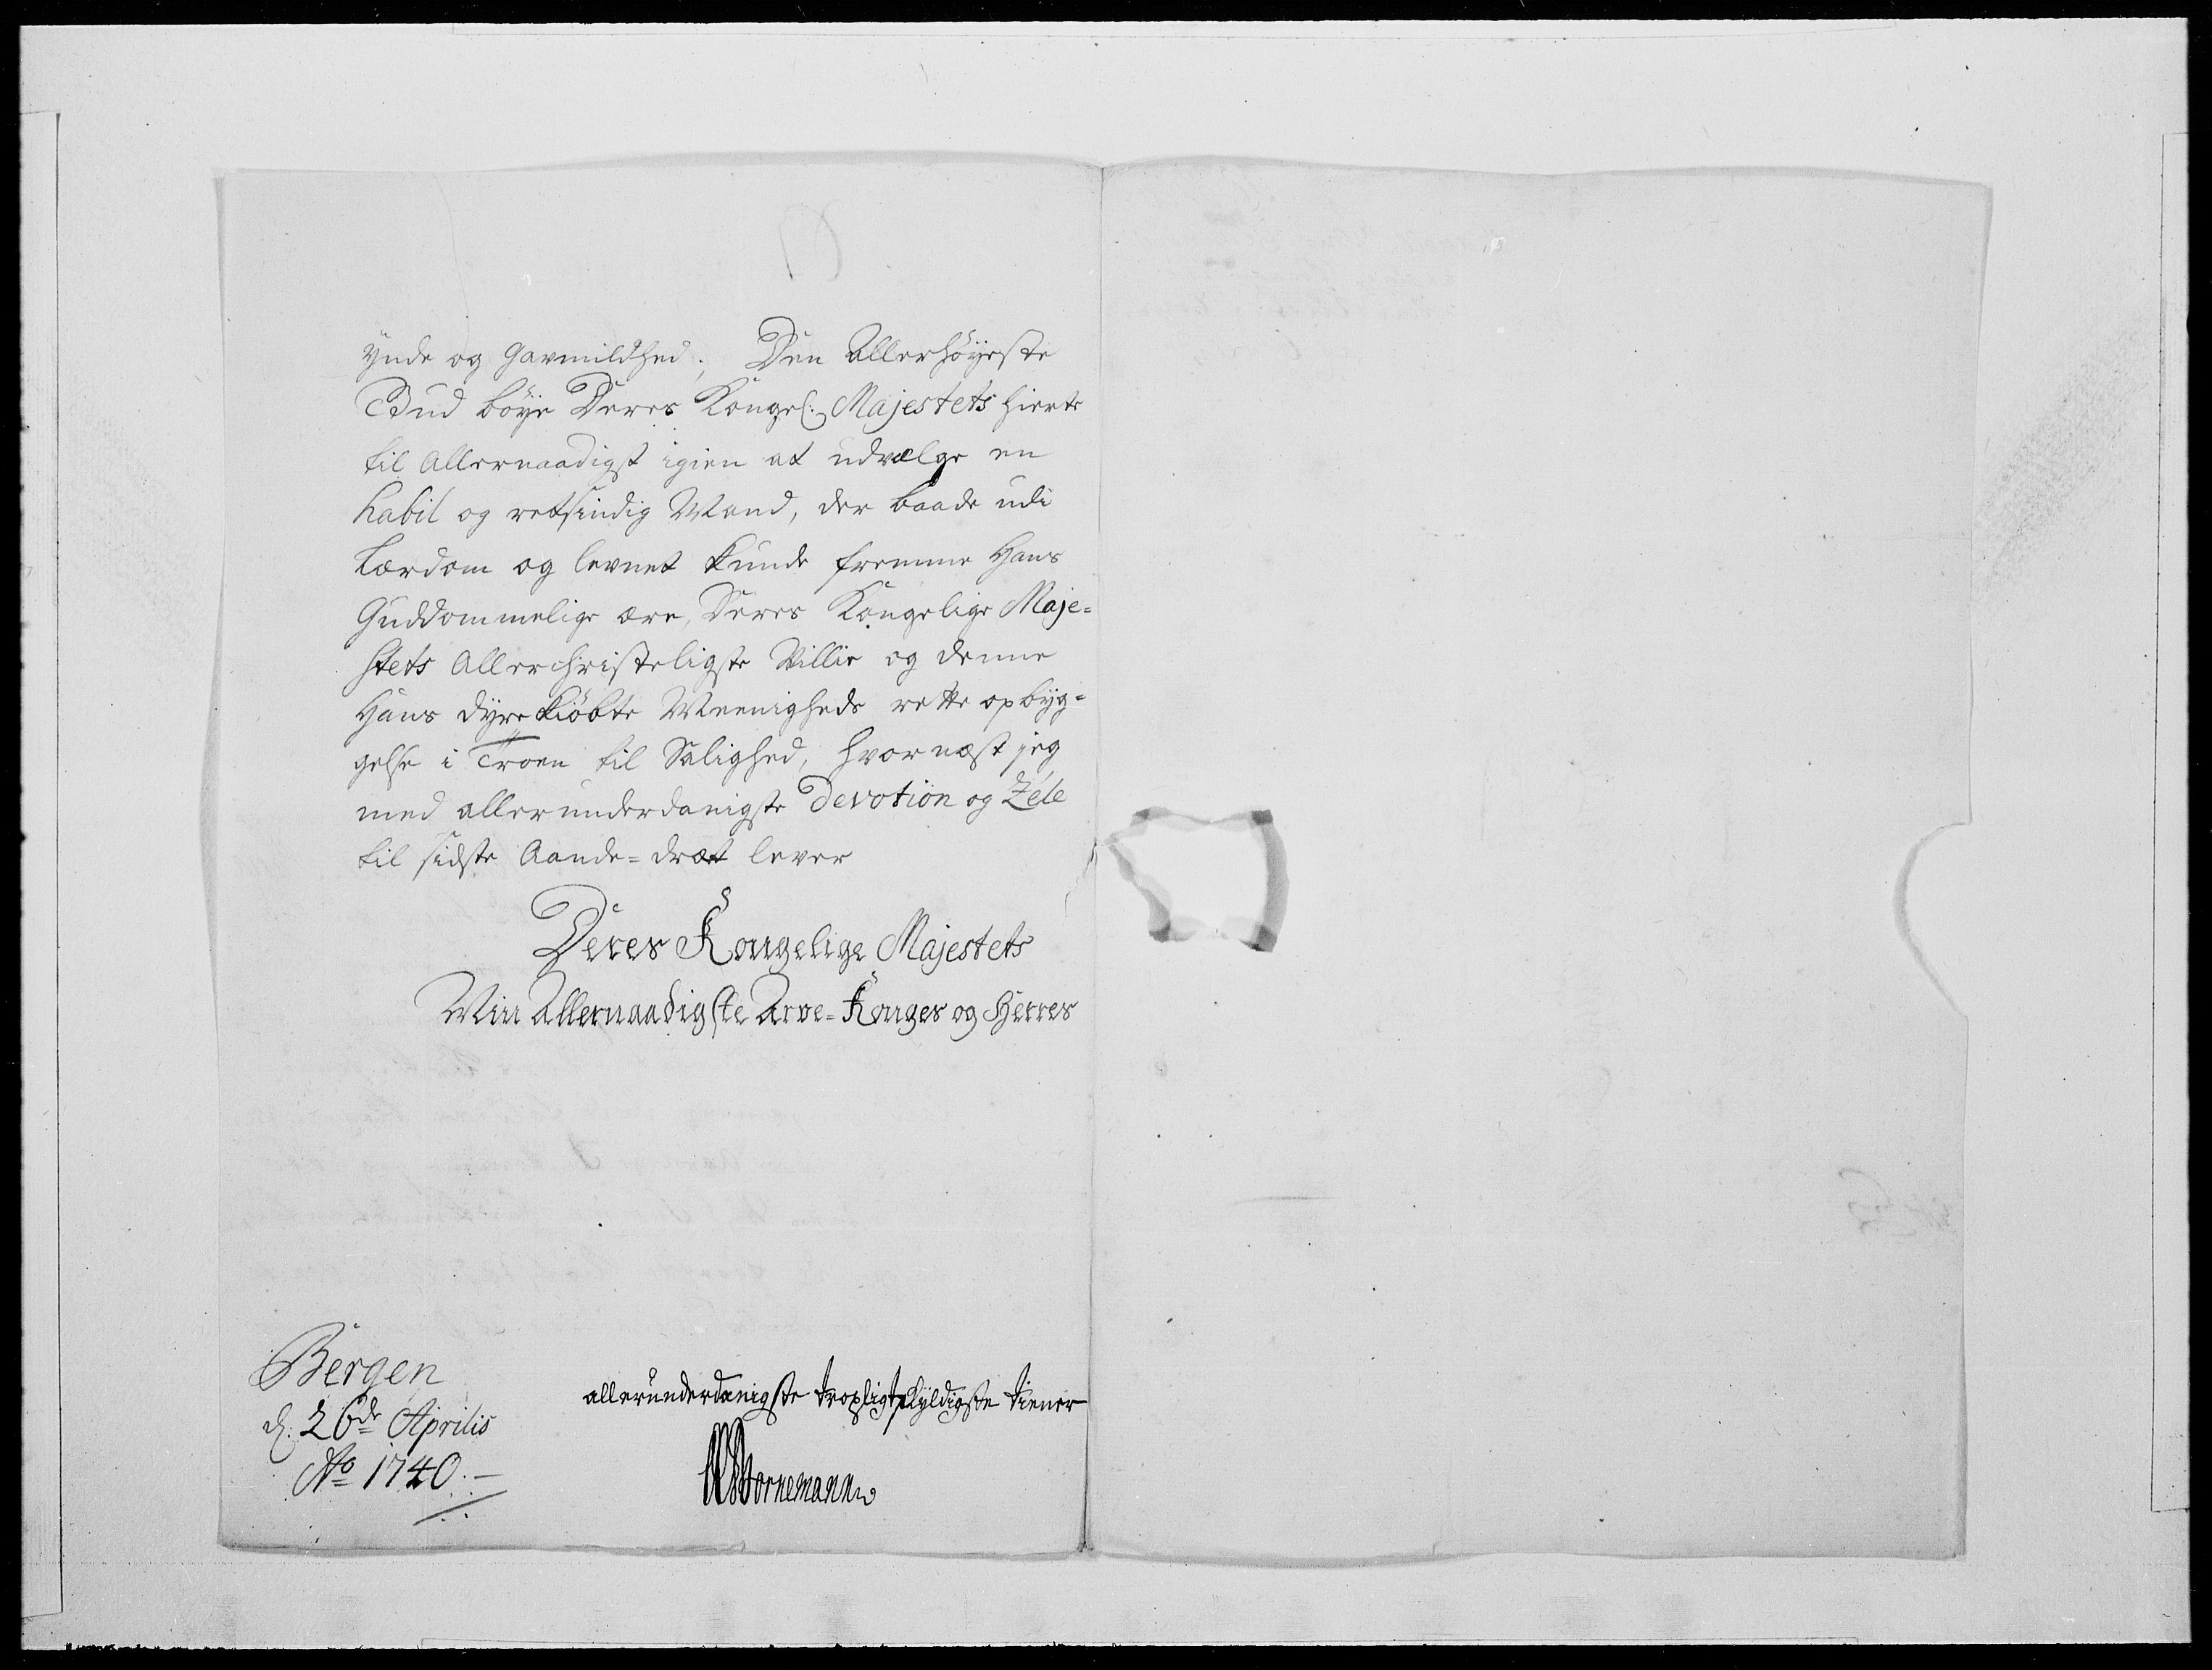 Ynde og Gavmildhed; Den Allerhöyeste
Gud böye Deres Kongel: Majestets hierte
til Allernaadigst igien at udvælge en
habil og retsindig Mand, der baade udi
Lærdom og levnet kunde fremme Hans
Guddommelige ære, Deres Kongelige Maje-
stets Allerchristeligste Villie og denne
Hans dyrekiöbte Meenigheds rette opbyg-
gelse i Troen til Salighed, hvornæst jeg
med allerunderdanigste Devotion og Zéle
til sidste Aande-dræt lever
Deres Kongelige Majestets
Min Allernaadigste Arve-Konges og Herres
allerunderdanigste tropligtskyldigste tiener
Bornemann
Bergen
d. 26de Aprilis
Ao 1740.-